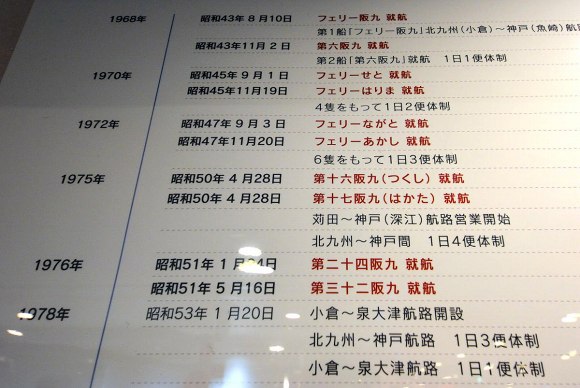 1968年 昭和43年 8月10日 フェリー阪九 就航
第1船「フェリー阪九」北九州(小倉)～神戸(魚崎)航
昭和43年11月 2日 第六阪九 就航
第2船「第六阪九」就航 1日1便体制
1970年 昭和45年 9月 1日 フェリーせと 就航
昭和45年11月19日 フェリーはりま 就航
4隻をもって1日2便体制
1972年 昭和47年 9月 3日 フェリーながと 就航
昭和47年11月20日 フェリーあかし 就航
6隻をもって1日3便体制
1975年 昭和50年 4月28日 第十六阪九(つくし) 就航
昭和50年 4月28日 第十七阪九(はかた) 就航
苅田～神戸(深江)航路営業開始
北九州～神戸間 1日4便体制
1976年 昭和51年 1月24日 第二十四阪九 就航
昭和51年 5月16日 第三十二阪九 就航
1978年 昭和53年 1月20日 小倉～泉大津航路開設
北九州～神戸航路 1日3便体制
小倉～泉大津航路 1日1便体制